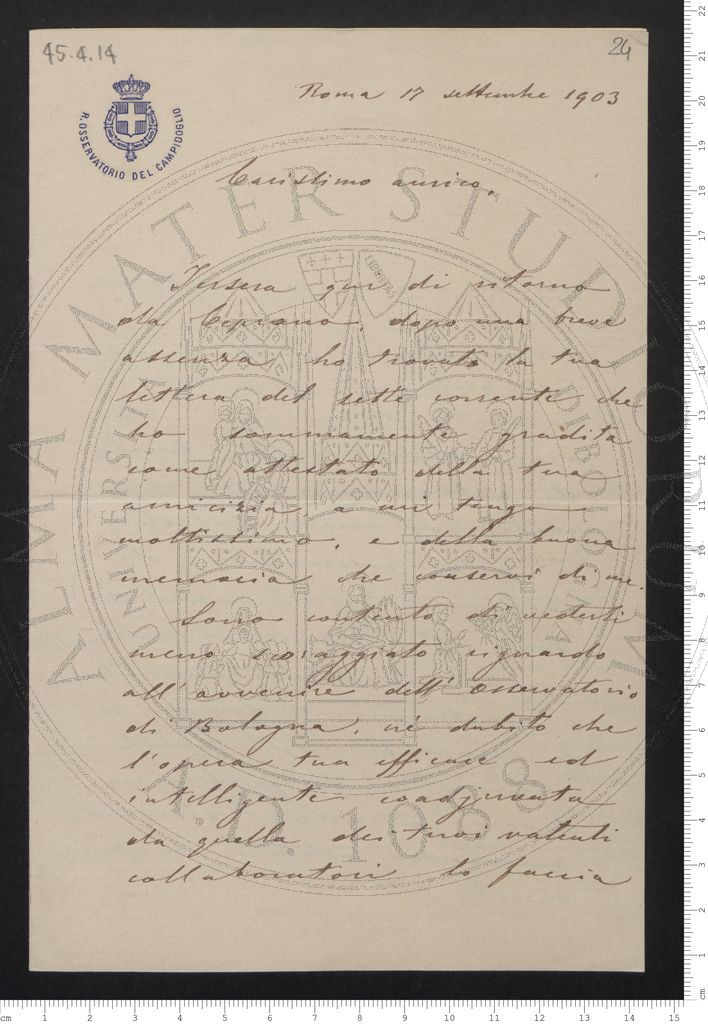 45.4.14
24
R. OSSERVATORIO DEL CAMPIDOGLIO
Roma 17 settembre 1903
Carissimo amico,
Iersera qui di ritorno
da Ceprano dopo una breve
assenza ho trovato la tua
lettera del sette corrente che
ho sommamente gradita
come attestato della tua
amicizia, a cui tengo
moltissimo, e della buona
memoria che conservi di me.
Sono contento di vederti
meno scoraggiato riguardo
all'avvenire dell'Osservatorio
di Bologna, nè dubito che
l'opera tua efficace ed
intelligente coadjuvata
da quella dei tuoi valenti
collaboratori lo faccia
ALMA MATER STUDIORUM
A.D. 1088
LIBERTAS